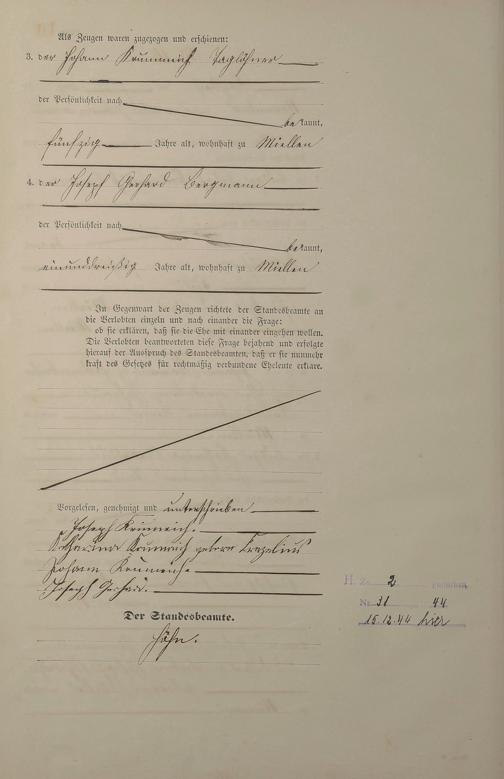 Als Zeugen waren zugezogen und erschienen:
3. der Johann Krummeich Taglöhner
der Persönlichkeit nach
bekannt,
fünfzig Jahre alt, wohnhaft zu Miellen
4. der Joseph Gerhard Bergmann
der Persönlichkeit nach
bekannt,
einunddreißig Jahre alt, wohnhaft zu Miellen
In Gegenwart der Zeugen richtete der Standesbeamte an
die Verlobten einzeln und nach einander die Frage:
ob sie erklären, daß sie die Ehe mit einander eingehen wollen.
Die Verlobten beantworteten diese Frage bejahend und erfolgte
hierauf der Ausspruch des Standesbeamten, daß er sie nunmehr
kraft des Gesetzes für rechtmäßig verbundene Eheleute erkläre.
Vorgelesen, genehmigt und unterschrieben
Joseph Krümeich.
Katharina Krumeich geborn
Johann Krümeich
Joseph Gerhard.
Der Standesbeamte.
Höhn.
H. 2
Nr. 31 44
15.12.44